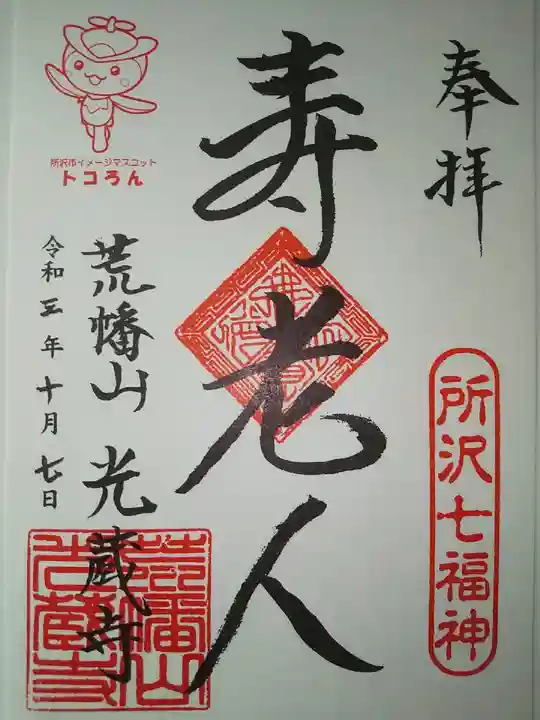 奉拝
所沢七福神
寿老人
所沢市イメージマスコット
トコろん
荒幡山 光蔵寺
令和三年十月七日
荒幡山
光蔵寺